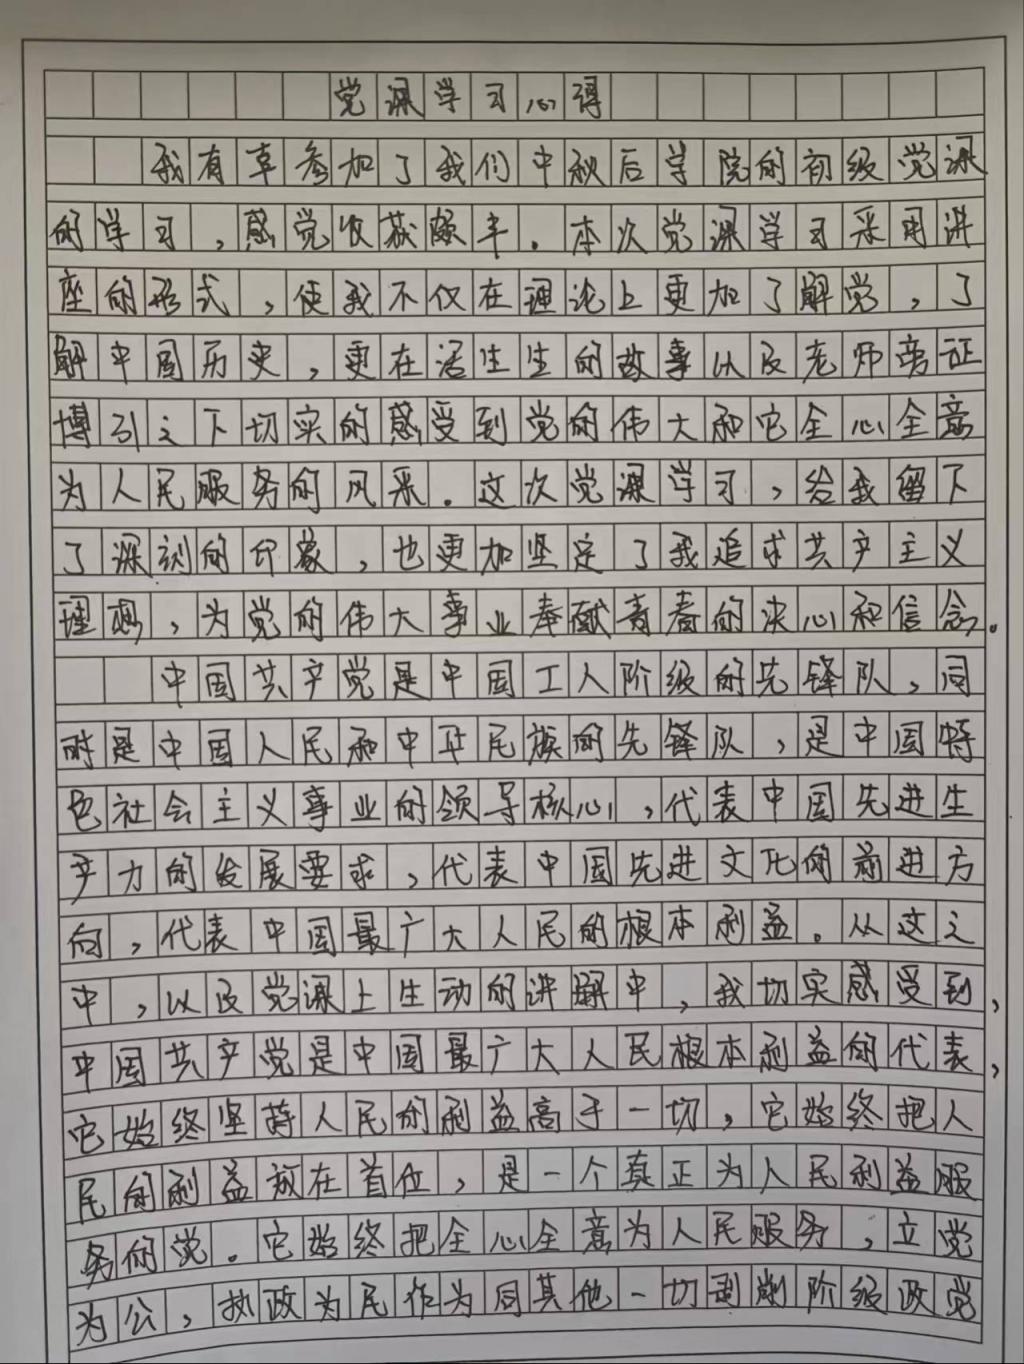 党课学习心得
我有幸参加了我们中秋后学院的初级党课
的学习，感觉收获颇丰。本次党课学习采用讲
座的形式，使我不仅在理论上更加了解党，了
解中国历史，更在活生生的故事以及老师旁证
博引之下切实的感受到党的伟大和它全心全意
为人民服务的风采。这次党课学习，给我留下
了深刻的印象，也更加坚定了我追求共产主义
理想，为党的伟大事业奉献青春的决心和信念。
中国共产党是中国工人阶级的先锋队，同
时是中国人民和中华民族的先锋队，是中国特
色社会主义事业的领导核心，代表中国先进生
产力的发展要求，代表中国先进文化的前进方
向，代表中国最广大人民的根本利益。从这之
中，以及党课上生动的讲解中，我切实感受到，
中国共产党是中国最广大人民根本利益的代表，
它始终坚持人民的利益高于一切，它始终把人
民的利益放在首位，是一个真正为人民利益服
务的党。它始终把全心全意为人民服务，立党
为公，执政为民作为同其他一切剥削阶级政党